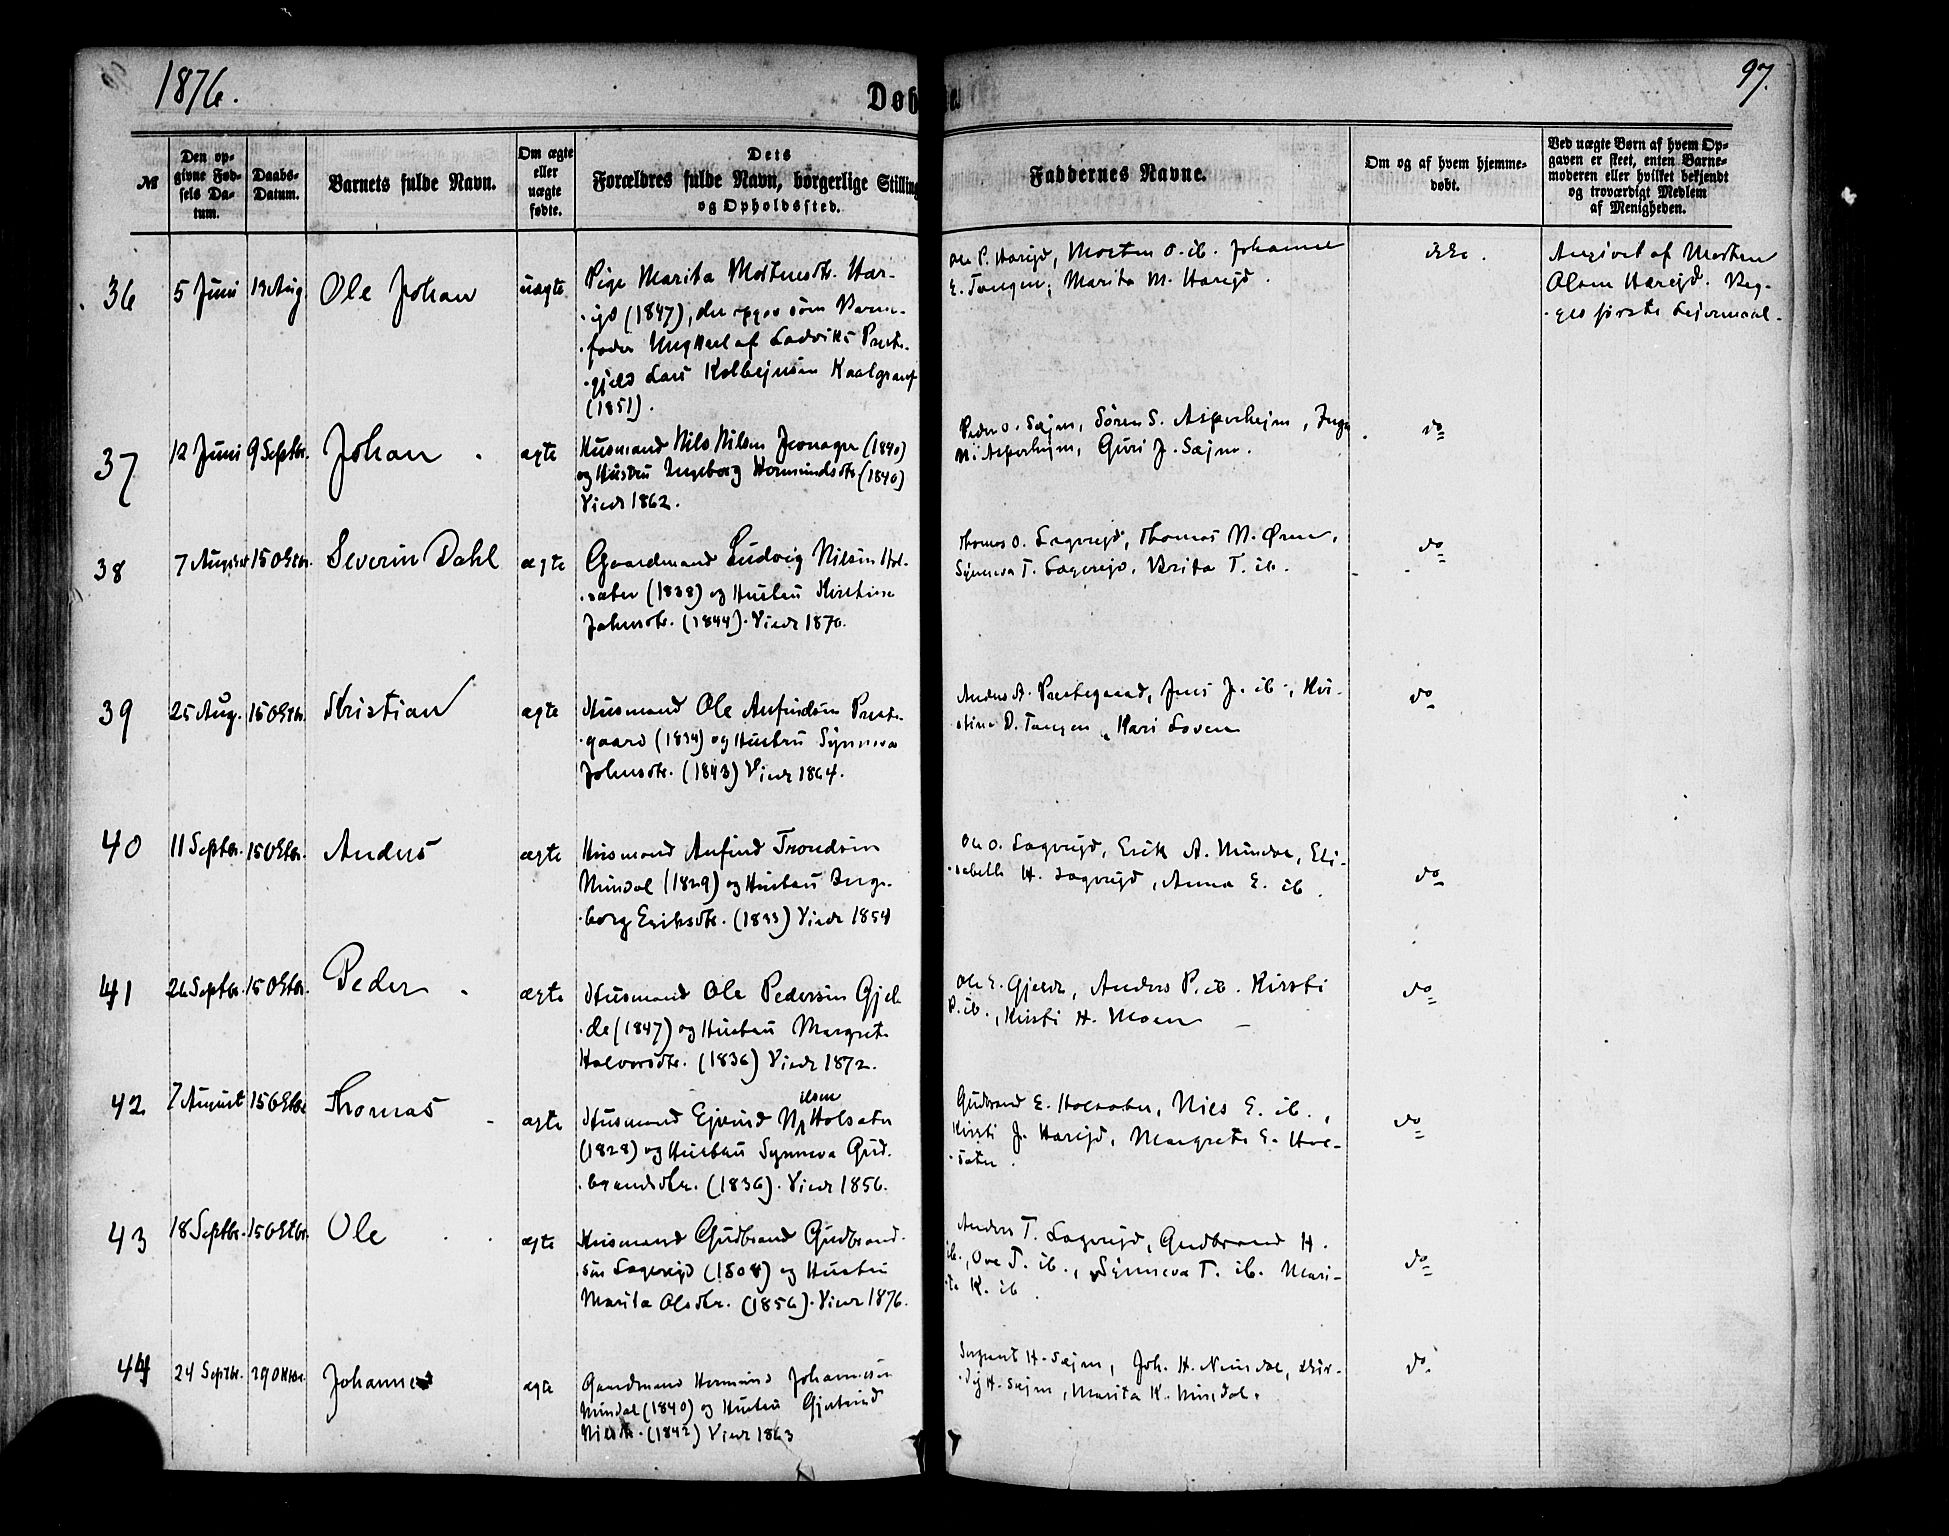 1876.
Døbte
97.
№
Den op-
givne Fød-
sels Da-
tum.
Daabs-
Datum.
Barnets fulde Navn.
Om ægte
eller
uægte
fødte.
Dets
Forældres fulde Navn, borgerlige Stilling
og Opholdssted.
Faddernes Navne.
Om og af hvem hjemme-
døbt.
Ved uægte Børn af hvem Op-
gaven er skeet, enten Barne-
moderen eller hvilket bekjendt
og troværdigt Medlem
af Menigheden.
36
5 Juni
13 Aug
Ole Johan
uægte
Pige Marita Mortensdtr. Har-
ejd (1847), der opgav som Barne-
fader Ungkarl af Ladviks Præste-
gjeld Lars Kolbejnsen
(1851).
Ole P. Harejd, Morten O. ib. Johanne
E. Tangen, Marita M. Harejd.
ikke.
Angivet af Morten
Olsen Harejd. Beg-
ges første Lejermaal.
37
12 Juni
9 Septbr.
Johan
ægte
Husmand Nils Nilsen (1840)
og Hustru Ingeborg Hermundsdtr (1840)
Viede 1862.
Peder O. Sæjm, Søren S. Asperhejm, Inge
N. Asperhejm, Guri J. Sæjm.
do
38
7 August
15 Oktbr.
Severin Dahl
ægte
Gaardmand Ludvig Nilsen Hol-
sæter (1838) og Hustru Kirstine
Johnsdtr. (1844). Viede 1870.
Thomas O. Lægrejd, Thomas N. Øren,
Synneva T. Lægrejd, Brita T. ib.
do
39
25 Aug.
15 Oktbr.
Kristian
ægte
Husmand Ole Anfindsen Præste-
gaard (1834) og Hustru Synneva
Johnsdtr. (1843) Viede 1864.
Anders A. Prestegaard, Jens J. ib., Kri-
stine D. Tangen, Kari Loven
do
40
11 Septbr.
15 Oktbr.
Anders
ægte
Husmand Anfind Trondsen
Mundal (1829) og Hustru Inge-
borg Eriksdtr. (1833) Viede 1854
Ole O. Lægrejd, Erik A. Mundal, Eli-
sabeth H. Lægrejd, Anna E. ib.
do
41
26 Septbr.
15 Oktbr.
Peder
ægte
Husmand Ole Pedersen Gjel-
de (1847) og Hustru Margrete
Halvorsdtr. (1836) Viede 1872.
Ole E. Gjelde, Anders P. ib. Kirsti
P. ib., Kirsti H. Moen
do
42
7 August
15 Oktbr
Thomas
ægte
Husmand Ejvind Nilsen Holsæter
(1828) og Hustru Synneva Gud-
brandsdtr. (1836). Viede 1856.
Gudbrand E. Holsæter, Nils E. ib.,
Kirsti J. Harejd, Margrete E. Hol-
sæter.
do
43
18 Septbr.
15 Oktbr.
Ole
ægte
Husmand Gudbrand Gudbrand-
sen Lægrejd (1808) og Hustru
Marita Olsdtr. (1856). Viede 1876.
Anders T. Lægrejd, Gudbrand H.
ib., Ove T. ib., Synneva T. ib. Mari-
ta K. ib.
do
44
24 Septbr.
29 Oktbr.
Johannes
ægte
Gaardmand Hermund Johannesen
Mundal (1840) og Hustru Gjertrud
Nilsdtr. (1842) Viede 1863
H. Sæjm, Joh. H. Mundal,
H. Sæjm, Marita K. Mundal.
do